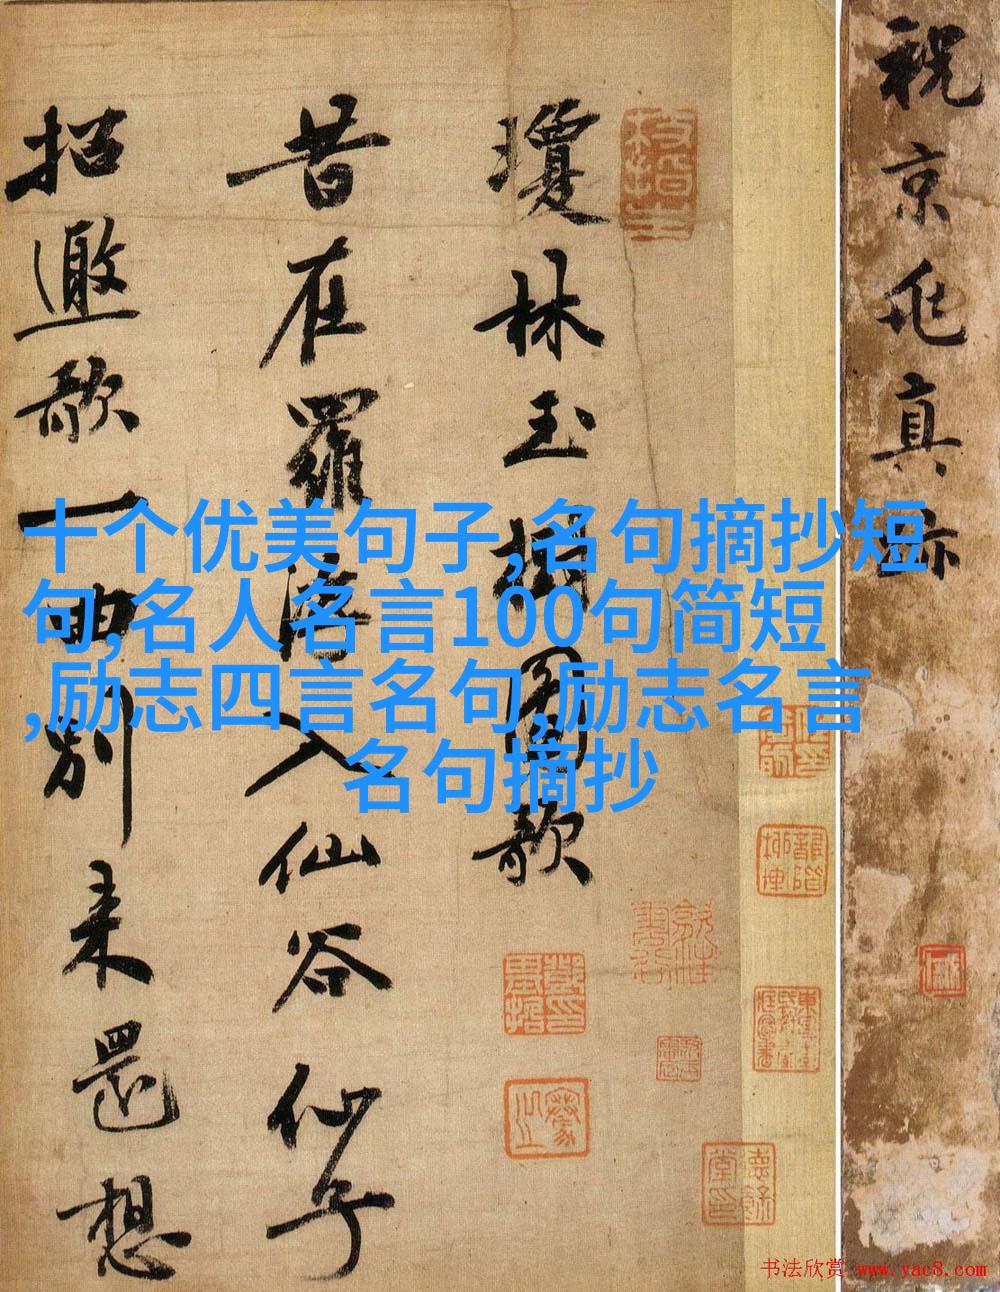 祝京兆真跡
瓊林玉樹圖歌
昔在羅浮入仙谷仙子
招邀歌一曲別來還想
十个优美句子,名句摘抄短
句,名人名言100句简短
,励志四言名句,励志名言
名句摘抄
书法欣赏 www.yac8.com